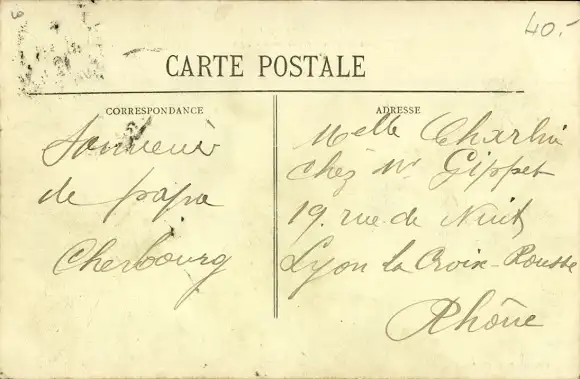 40.-
CARTE POSTALE
CORRESPONDANCE
ADRESSE
Souvenir
de papa
Cherbourg
Melle Charlin
chez Mr Gippet
19. rue de Nuit
Lyon la Croix-Rousse
Rhône